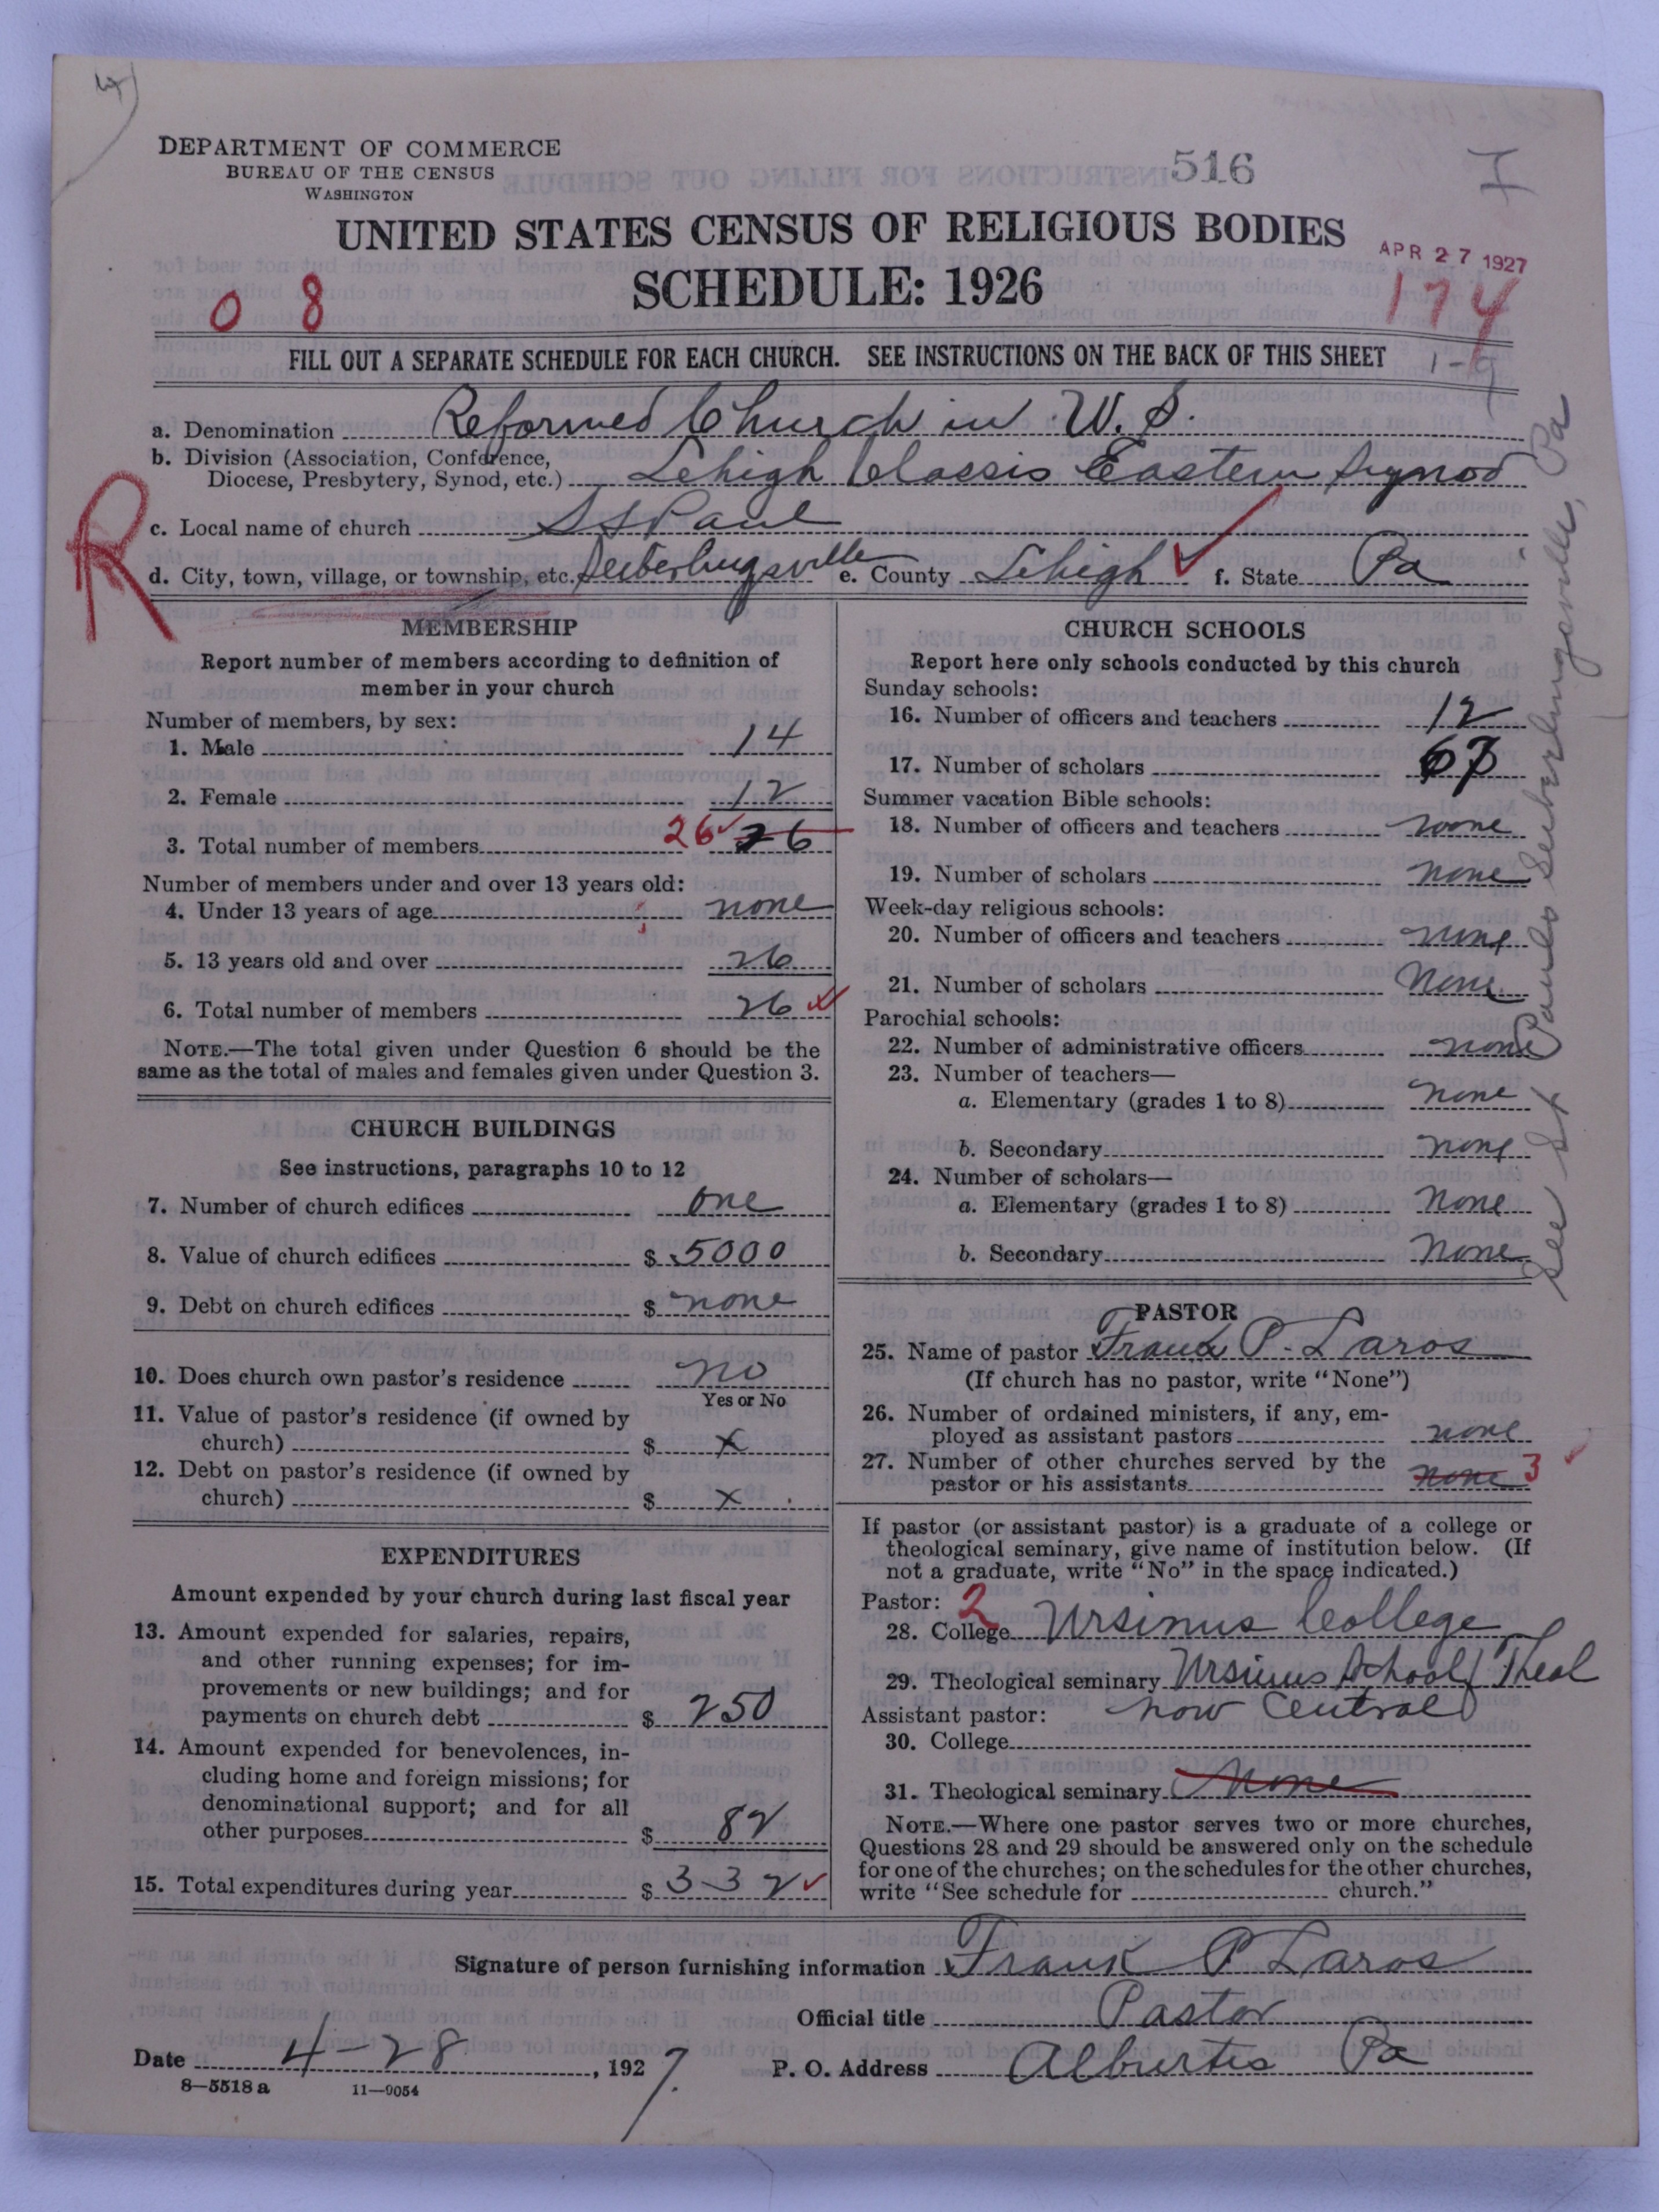 DEPARTMENT OF COMMERCE
BUREAU OF THE CENSUS
WASHINGTON
516
UNITED STATES CENSUS OF RELIGIOUS BODIES
SCHEDULE: 1926
APR 27 1927
0 8
174
1-9
FILL OUT A SEPARATE SCHEDULE FOR EACH CHURCH. SEE INSTRUCTIONS ON THE BACK OF THIS SHEET
a. Denomination Reformed Church in U. S.
b. Division (Association, Conference,
Diocese, Presbytery, Synod, etc.) Lehigh Classis Eastern Synod
R
c. Local name of church St Paul
d. City, town, village, or township, etc. Seiberlingsville e. County Lehigh f. State Pa
MEMBERSHIP
Report number of members according to definition of
member in your church
Number of members, by sex:
1. Male 14
2. Female 12
3. Total number of members 26 26
Number of members under and over 13 years old:
4. Under 13 years of age none
5. 13 years old and over 26
6. Total number of members 26
NOTE.—The total given under Question 6 should be the
same as the total of males and females given under Question 3.
CHURCH BUILDINGS
See instructions, paragraphs 10 to 12
7. Number of church edifices one
8. Value of church edifices $ 5000
9. Debt on church edifices $ none
10. Does church own pastor's residence no
Yes or No
11. Value of pastor's residence (if owned by
church) $ x
12. Debt on pastor's residence (if owned by
church) $ x
EXPENDITURES
Amount expended by your church during last fiscal year
13. Amount expended for salaries, repairs,
and other running expenses; for im-
provements or new buildings; and for
payments on church debt $ 250
14. Amount expended for benevolences, in-
cluding home and foreign missions; for
denominational support; and for all
other purposes $ 82
15. Total expenditures during year $ 332
CHURCH SCHOOLS
Report here only schools conducted by this church
Sunday schools:
16. Number of officers and teachers 12
17. Number of scholars 67
Summer vacation Bible schools:
18. Number of officers and teachers none
19. Number of scholars none
Week-day religious schools:
20. Number of officers and teachers none
21. Number of scholars None
Parochial schools:
22. Number of administrative officers none
23. Number of teachers—
a. Elementary (grades 1 to 8) none
b. Secondary none
24. Number of scholars—
a. Elementary (grades 1 to 8) None
b. Secondary None
PASTOR
25. Name of pastor Frank P. Laros
(If church has no pastor, write "None")
26. Number of ordained ministers, if any, em-
ployed as assistant pastors none
27. Number of other churches served by the
pastor or his assistants none 3
If pastor (or assistant pastor) is a graduate of a college or
theological seminary, give name of institution below. (If
not a graduate, write "No" in the space indicated.)
Pastor: 2
28. College Ursinus College
29. Theological seminary Ursinus School of Theol
Assistant pastor: now Central
30. College
31. Theological seminary None
NOTE.—Where one pastor serves two or more churches,
Questions 28 and 29 should be answered only on the schedule
for one of the churches; on the schedules for the other churches,
write "See schedule for church."
See St Pauls Seiberlingsville, Pa
Signature of person furnishing information Frank P Laros
Official title Pastor
Date 4-28, 1927. P. O. Address Alburtis Pa
8-5518 a 11-9054